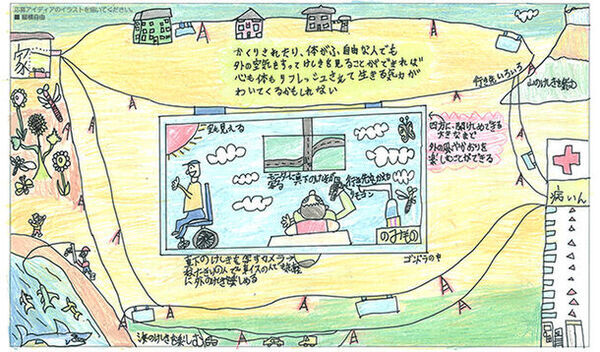 応募アイディアのイラストを描いてください。
■ 縦横自由
家
かくりされたり、体がふ自由な人でも
外の空気をすってけしきを見ることができれば
心も体もリフレッシュされて生きる気力が
わいてくるかもしれない
行き先いろいろ
山のけしきを
空も見える
四方に
大きなまど
外の風やかおりを
楽しむことができる
モニターに真下のけしきが
行き先
リモコン
のみもの
病いん
真下のけしきを写すカメラ
ねたきりの人でも車イスの人でも
に外のけしきを楽しめる
ゴンドラの中
海のけしきも楽しむ